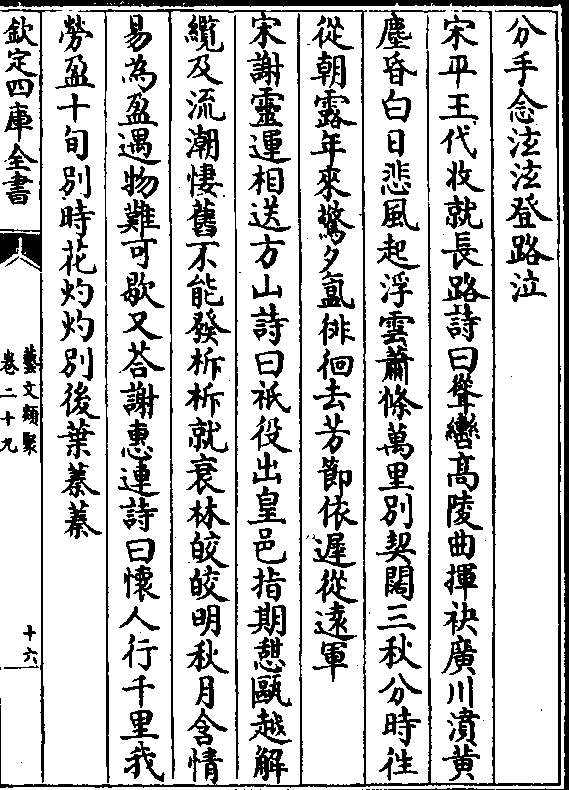 分手念泫泫登路泣
宋平王代妝就長路詩曰聳轡髙陵曲揮袂廣川濆黄
塵昏白日悲風起浮雲蕭條萬里別契闊三秋分時徃
從朝露年來驚夕氲徘徊去芳節依遲從逺軍
宋謝靈運相送方山詩曰祗役出皇邑指期憇甌越解
纜及流潮悽舊不能發析析就衰林皎皎明秋月含情
易為盈遇物難可歇又荅謝惠連詩曰懷人行千里我
勞盈十旬別時花灼灼別後葉蓁蓁
欽定四庫全書
藝文類聚
卷二十九
十六